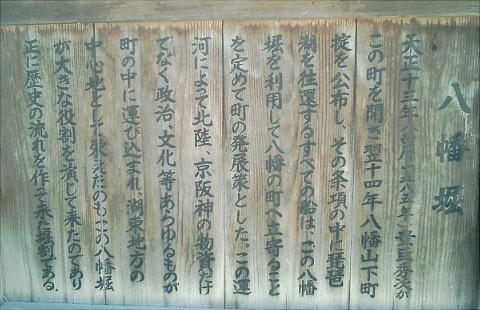 八幡堀
天正十三年(一五八五年)豊臣秀次が
この町を開き翌十四年八幡山下町
掟を公布し、その条項の中に琵琶
湖を往還するすべての船は、この八幡
堀を利用して八幡の町へ立寄ること
を定めて町の発展策とした。この運
河によって北陸、京阪神の物資だけ
でなく政治、文化等あらゆるものが
町の中に運び込まれ、湖東地方の
中心地として栄えたのもこの八幡堀
が大きな役割を演じて来たのであり
正に歴史の流れを作って来た堀割である。